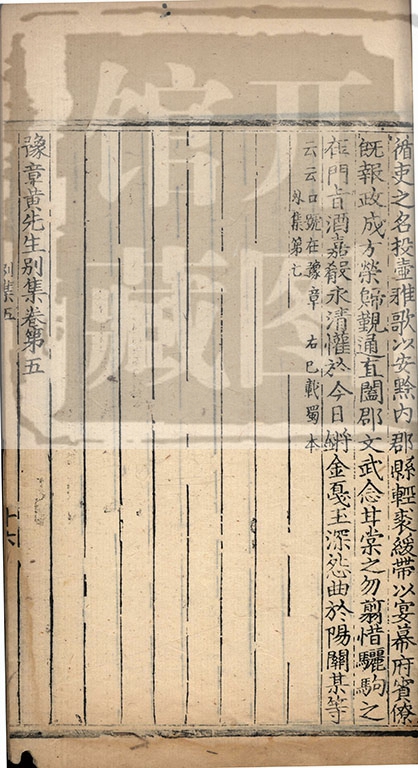 循吏之名投壺雅歌以安黔内郡縣輕裘緩帶以宴幕府賓僚
既報政成方榮歸觀通直闔郡文武念甘棠之勿翦惜驪駒之
在門旨酒嘉殽永清懽於今日鏘金戛玉深怨曲於陽關某等
云云口號在豫章 右已載蜀本
外集第七
豫章黃先生別集卷第五
別集五
十六
馆开
藏图